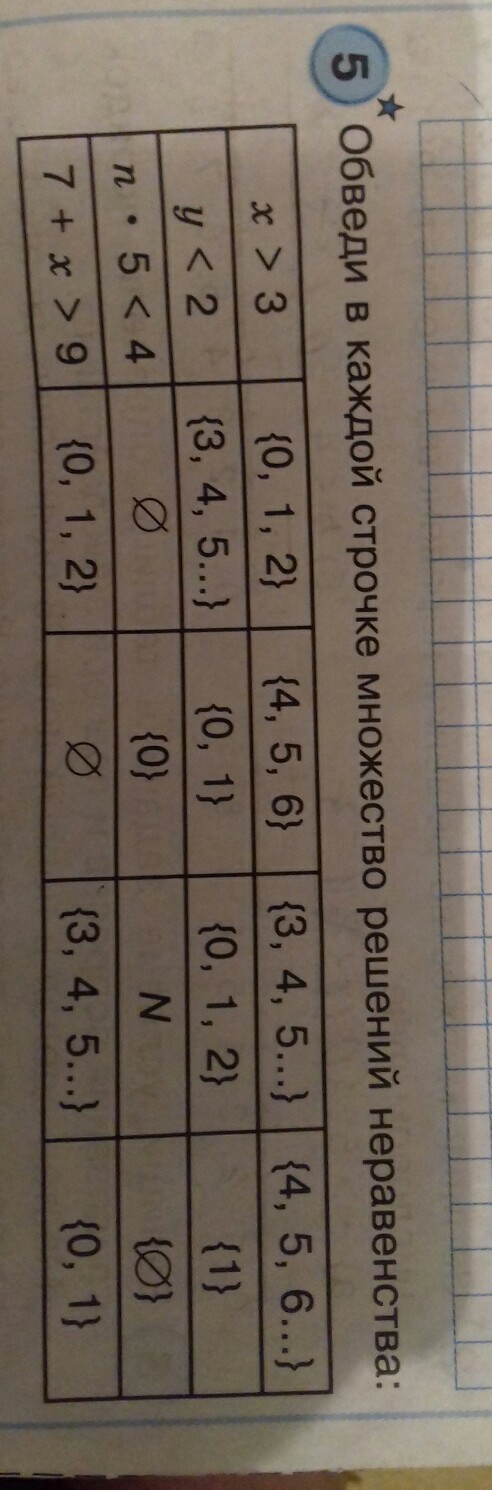 5* Обведи в каждой строчке множество решений неравенства:
x > 3 {0, 1, 2} {4, 5, 6} {3, 4, 5...} {4, 5, 6...}
y < 2 {3, 4, 5...} {0, 1} {0, 1, 2} {1}
n • 5 < 4 ∅ {0} N {∅}
7 + x > 9 {0, 1, 2} ∅ {3, 4, 5...} {0, 1}